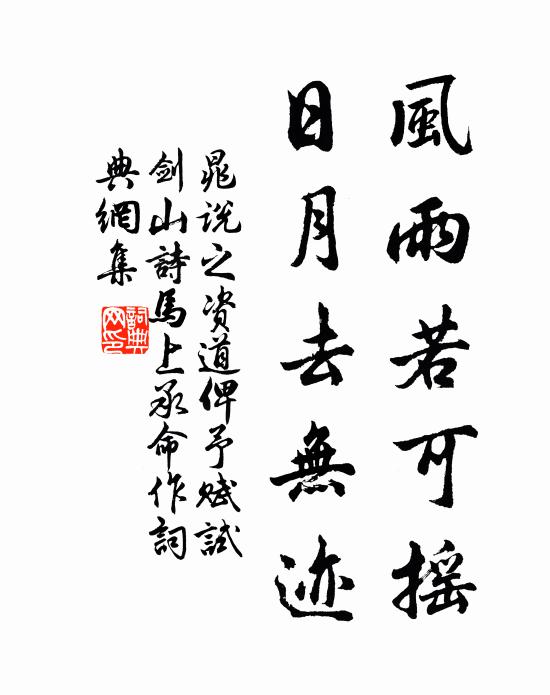 風雨若可摇
日月去無迹
晁説之资道俾予赋試
劍山詩馬上承命作詞
典網集
詞典
网印